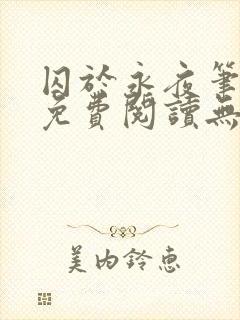 囚於永夜筆
免費閱讀無
美内鈴惠